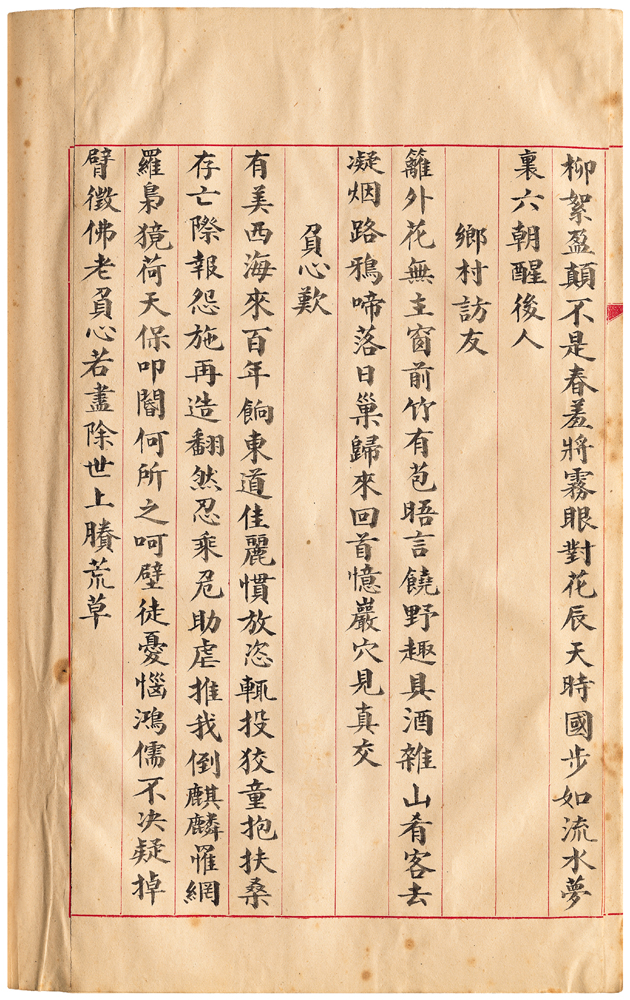 柳絮盈顛不是春羞將霧眼對花辰天時國步如流水夢
裏六朝醒後人
鄉村訪友
籬外花無主窗前竹有苞晤言饒野趣具酒雜山肴客去
凝烟路鴉啼落日巢歸來回首憶巖穴見真交
負心歎
有美西海來百年餉東道佳麗慣放恣輒投狡童抱扶桑
存亡際報怨施再造翻然忍乘危助虐推我倒麒麟罹網
羅梟獍荷天保叩閽何所之呵壁徒憂惱鴻儒不决疑掉
臂徵佛老負心若盡除世上賸荒草